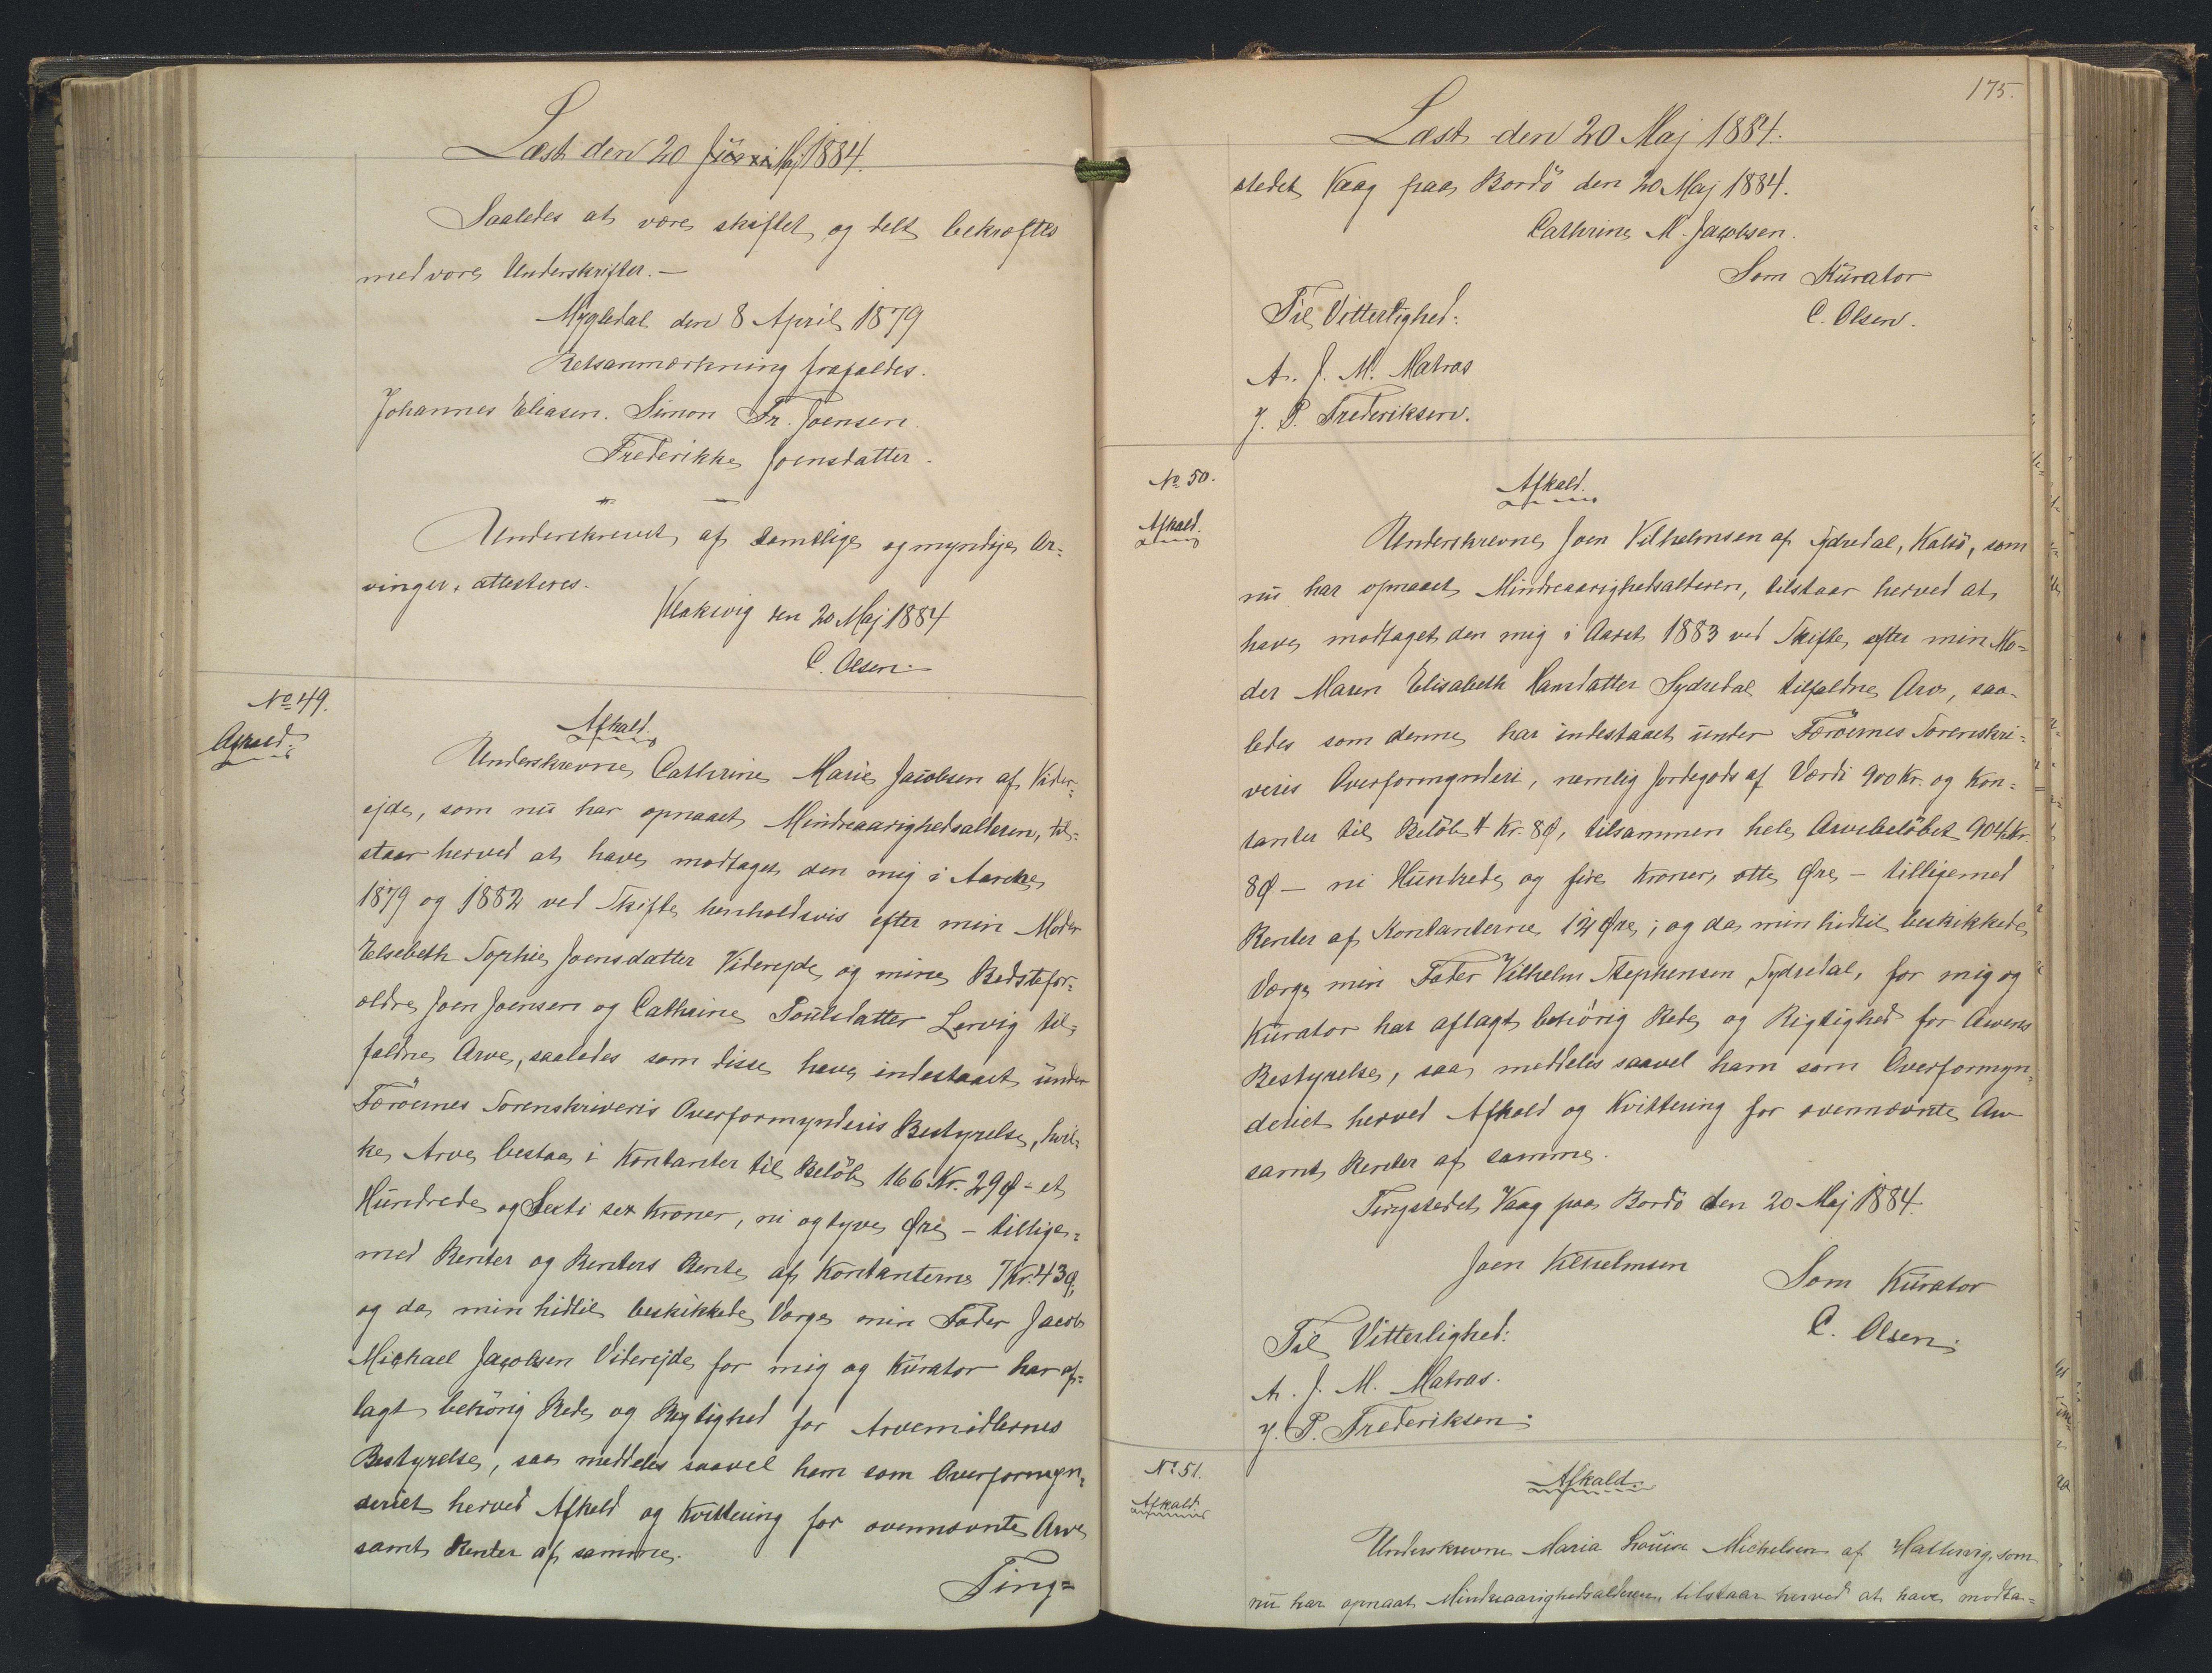 Læst den 20 Juni Maj 1884.
Saaledes at være skiftet og delt bekræftes
med vore Underskrifter. —
Mygledal den 8 April 1879
Retsanmærkning frafaldes.
Johannes Eliasen. Simon Fr. Joensen.
Frederikke Joensdatter.
Underskrevet af samtlige og myndige Ar-
vinger, attesteres.
Klaksvig den 20 Maj 1884
C. Olsen.
No 49.
Afkald.
Afkald.
Underskrevne Cathrine Marie Jacobsen af Vider-
ejde, som nu har opnaaet Mindreaarighedsalderen, til-
staar herved at have modtaget den mig i Aarene
1879 og 1882 ved Skifte henholdsvis efter min Moder
Elsebeth Sophie Joensdatter Viderejde og mine Bedstefor-
ældre Joen Joensen og Cathrine Poulsdatter Lervig til-
faldne Arve, saaledes som disse have indestaaet under
Færøernes Sorenskriveris Overformynderis Bestyrelse, hvil-
ke Arve bestaa i Kontanter til Beløb 166 Kr. 29 Ø - et
Hundrede og Sexti sex Kroner, ni og tyve Øre - tillige-
med Renter og Renters Rente af Kontanterne 7 Kr. 43 Ø,
og da min hidtil beskikkede Værge min Fader Jacob
Michael Jacobsen Viderejde for mig og Kurator har af-
lagt behørig Rede og Rigtighed for Arvemidlernes
Bestyrelse, saa meddeles saavel ham som Overformyn-
deriet herved Afkald og Kvittering for ovennævnte Arve
samt Renter af samme.
Ting-
175.
Læst den 20 Maj 1884.
stedet Vaag paa Bordö den 20 Maj 1884.
Cathrine M. Jacobsen.
Som Kurator
C. Olsen.
Til Vitterlighed:
A. J. M. Matras
J. P. Frederiksen.
No 50.
Afkald.
Afkald.
Underskrevne Joen Vilhelmsen af Sydredal, Kalsö, som
nu har opnaaet Mindreaarighedsalderen, tilstaar herved at
have modtaget den mig i Aaret 1883 ved Skifte efter min Mo-
der Maren Elisabeth Hansdatter Sydredal tilfaldne Arv, saa-
ledes som denne har indestaaet under Færøernes Sorenskri-
veris Overformynderi, nemlig Jordegods af Værdi 900 Kr. og Kon-
tanter til Beløb 4 Kr. 8 Ø, tilsammen hele Arvebeløbet 904 Kr.
8 Ø — ni Hundrede og fire Kroner, otte Øre — tilligemed
Renter af Kontanterne 12 Øre; og da min hidtil beskikkede
Værge min Fader Vilhelm Stephensen Sydredal, for mig og
Kurator har aflagt behørig Rede og Rigtighed for Arvens
Bestyrelse, saa meddeles saavel ham som Overformyn-
deriet herved Afkald og Kvittering for ovennævnte Arv
samt Renter af samme.
Tingstedet Vaag paa Bordö den 20 Maj 1884.
Joen Vilhelmsen
Som Kurator
C. Olsen.
Til Vitterlighed:
A. J. M. Matras.
J. P. Frederiksen.
No 51.
Afkald.
Afkald.
Underskrevne Maria Louise Michelsen af Hattervig, som
nu har opnaaet Mindreaarighedsalderen, tilstaar herved at have modta-